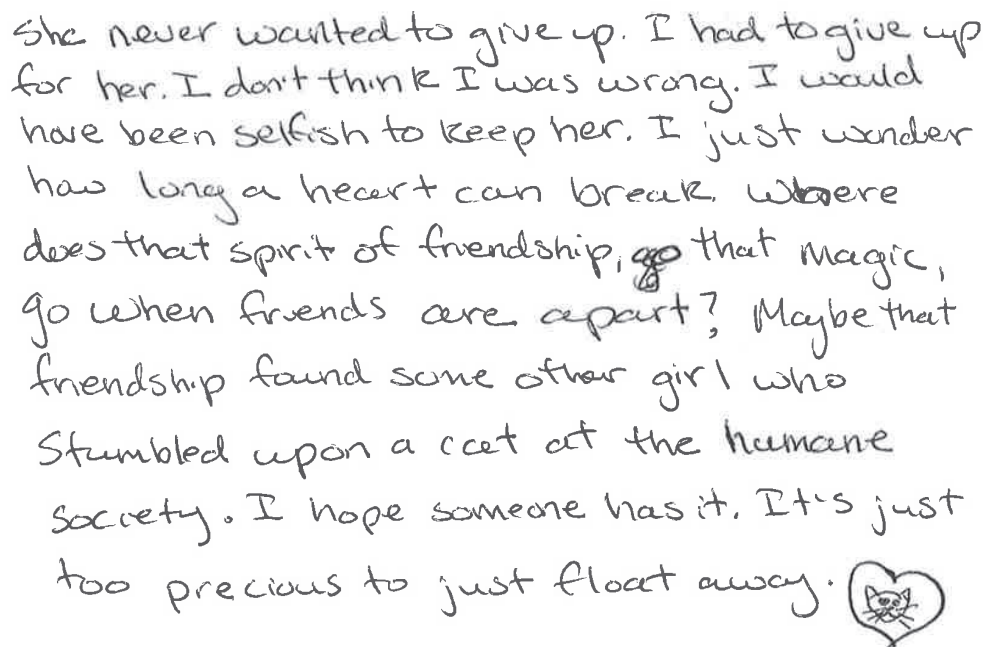 She never wanted to give up. I had to give up
for her. I don't think I was wrong. I would
have been selfish to keep her. I just wonder
how long a heart can break. Where
does that spirit of friendship, that magic,
go when friends are apart? Maybe that
friendship found some other girl who
stumbled upon a cat at the humane
society. I hope someone has it. It's just
too precious to just float away.